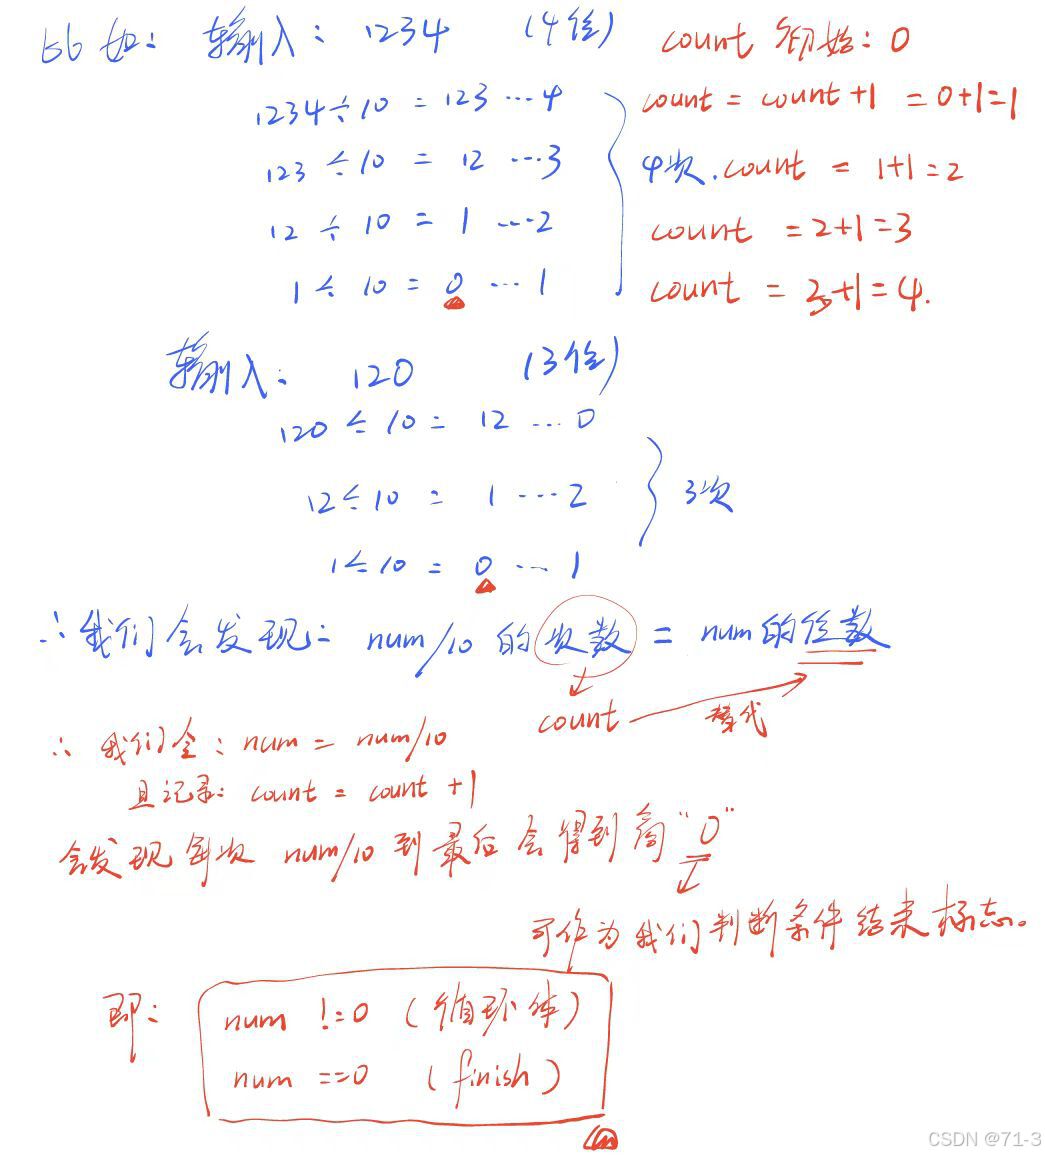 比如: 输入: 1234 (4位) count 初始: 0
1234÷10 = 123 ···4 count = count+1 = 0+1=1
123÷10 = 12 ···3 4次. count = 1+1=2
12÷10 = 1 ···2 count = 2+1=3
1÷10 = 0 ···1 count = 3+1=4.
输入: 120 (3位)
120÷10 = 12 ...0
12÷10 = 1 ···2 3次
1÷10 = 0 ···1
∴我们会发现: num/10 的次数 = num的位数
count 替代
∴ 我们令: num = num/10
且记录: count = count +1
会发现每次 num/10 到最后会得到商"0"
可作为我们判断条件结束标志。
即: num !=0 (循环体)
num ==0 (finish)
CSDN @71-3